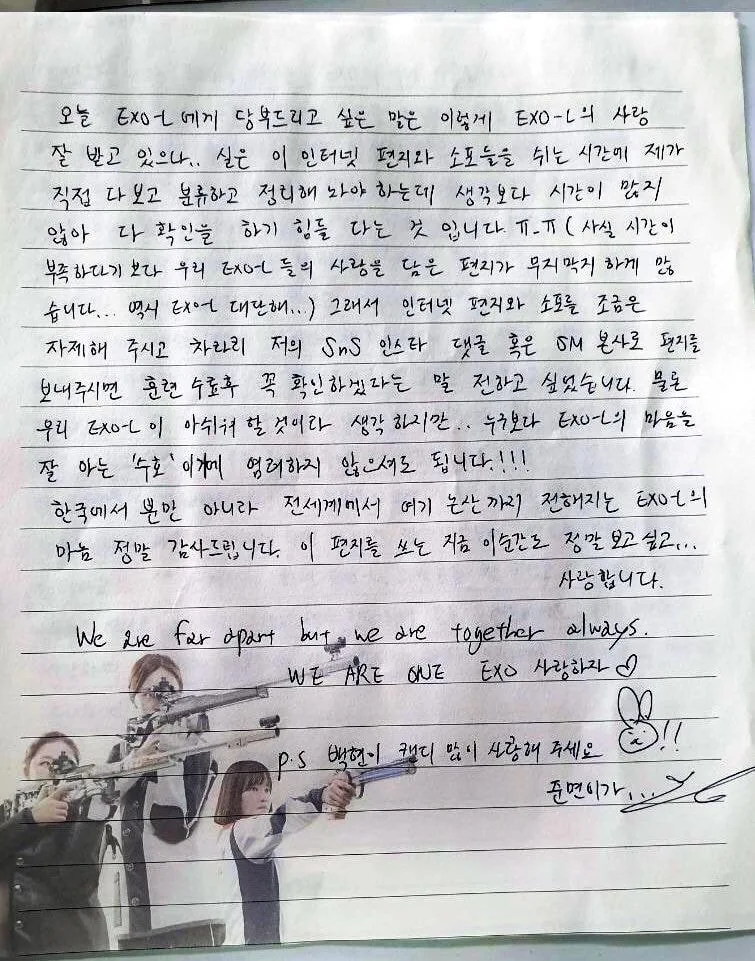 오늘 EXO-L에게 당부드리고 싶은 말은 이렇게 EXO-L의 사랑
잘 받고 있으나.. 실은 이 인터넷 편지와 소포들을 쉬는 시간에 제가
직접 다 보고 분류하고 정리해 놔야 하는데 생각보다 시간이 많지
않아 다 확인을 하기 힘들 다는 것 입니다. ㅠ_ㅠ ( 사실 시간이
부족하다기 보다 우리 EXO-L 들의 사랑을 담은 편지가 무지막지 하게 많
습니다... 역시 EXO-L 대단해...) 그래서 인터넷 편지와 소포를 조금은
자제해 주시고 차라리 저의 SnS 인스타 댓글 혹은 SM 본사로 편지를
보내주시면 훈련 수료후 꼭 확인하겠다는 말 전하고 싶었습니다. 물론
우리 EXO-L이 아쉬워 할 것이라 생각 하지만.. 누구보다 EXO-L의 마음을
잘 아는 '수호' 이기에 염려하지 않으셔도 됩니다.!!!
한국에서 뿐만 아니라 전세계에서 여기 논산 까지 전해지는 EXO-L의
마음 정말 감사드립니다. 이 편지를 쓰는 지금 이순간도 정말 보고 싶고...
사랑합니다.
We are far apart but we are together always.
WE ARE ONE EXO 사랑하자 ♡
p.s 백현이 캔디 많이 사랑해 주세요 !!
준면이가...